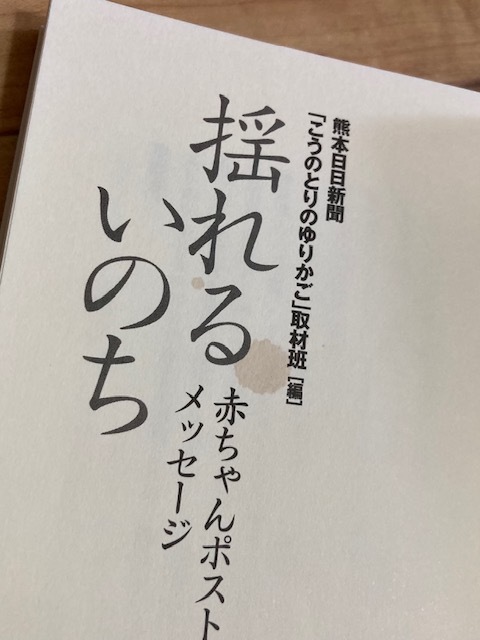 熊本日日新聞
「こうのとりのゆりかご」取材班［編］
揺れる
いのち
赤ちゃんポスト
メッセージ